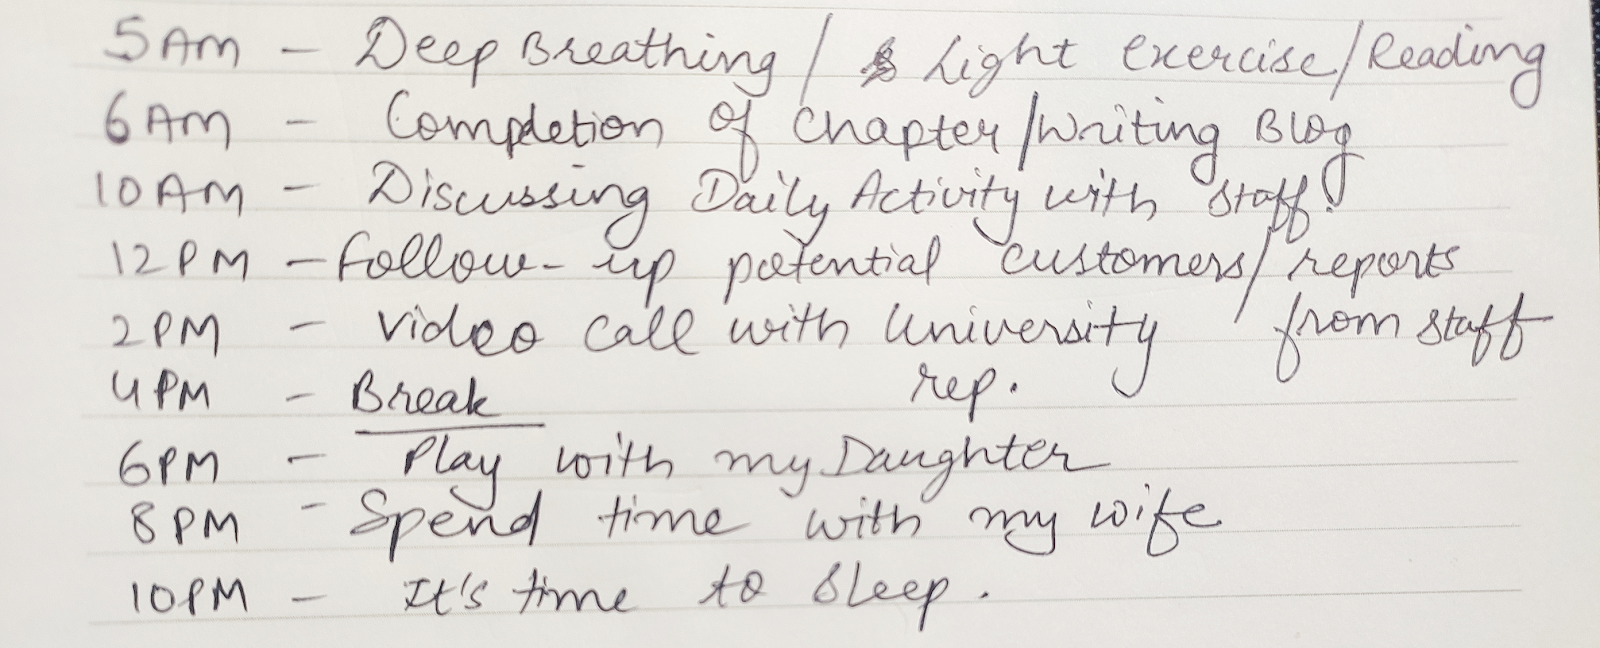 5 AM - Deep Breathing / Light exercise/Reading
6 AM - Completion of Chapter/Writing Blog
10 AM - Discussing Daily Activity with staff.
12 PM - Follow-up potential customers/reports
2 PM - Video call with University / from staff
rep.
4 PM - Break
6 PM - Play with my Daughter
8 PM - Spend time with my wife
10 PM - It's time to sleep.